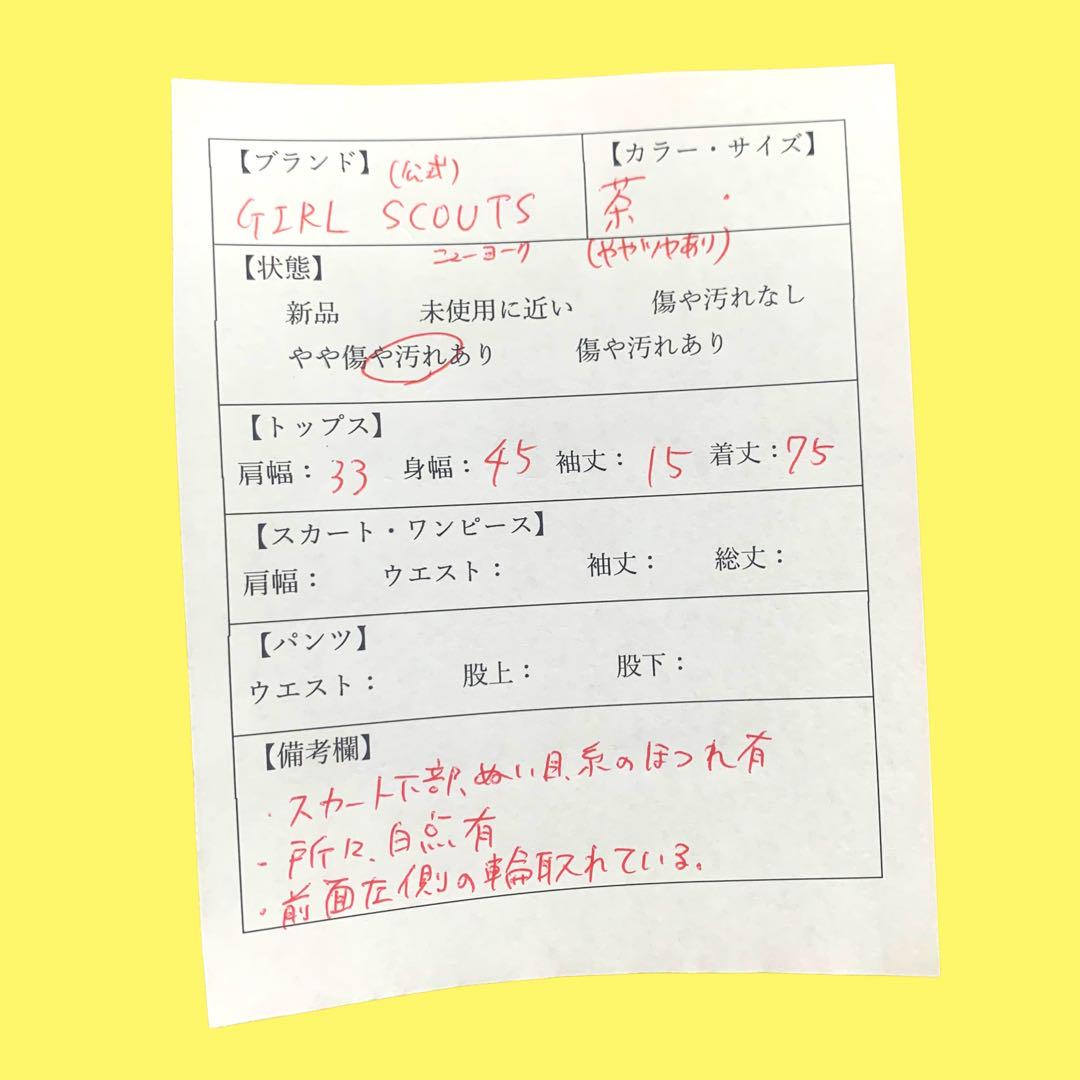 【ブランド】(公式)
GIRL SCOUTS
ニューヨーク
【カラー・サイズ】
茶 ・
(ややツヤあり)
【状態】
新品 未使用に近い 傷や汚れなし
やや傷や汚れあり 傷や汚れあり
【トップス】
肩幅：33 身幅：45 袖丈：15 着丈：75
【スカート・ワンピース】
肩幅： ウエスト： 袖丈： 総丈：
【パンツ】
ウエスト： 股上： 股下：
【備考欄】
・スカート下部、ぬい目、糸のほつれ有
・所に、白点有
・前面左側の輪取れている。